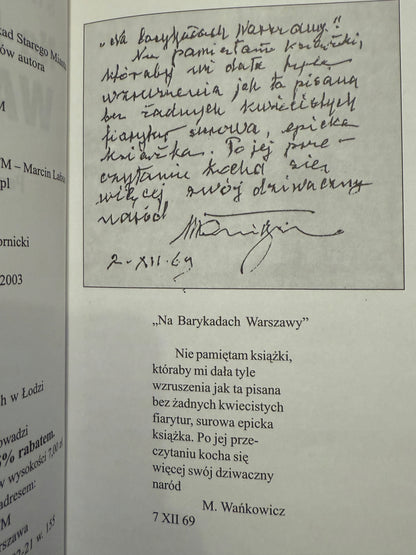 ad Starego Miasta
ów autora
M
M – Marcin Łaba
pl
ornicki
2003
h w Łodzi
owadzi
5% rabatem.
w wysokości 7,00 zł
adresem:
M
rszawa
2-21 w. 155
„Na Barykadach Warszawy”
Nie pamiętam książki,
któraby mi dała tyle
wzruszenia jak ta pisana
bez żadnych kwiecistych
fiarytur surowa, epicka
książka. Po jej prze-
czytaniu kocha się
więcej swój dziwaczny
naród
2-XII-69
„Na Barykadach Warszawy”
Nie pamiętam książki,
któraby mi dała tyle
wzruszenia jak ta pisana
bez żadnych kwiecistych
fiarytur, surowa epicka
książka. Po jej prze-
czytaniu kocha się
więcej swój dziwaczny
naród
M. Wańkowicz
7 XII 69